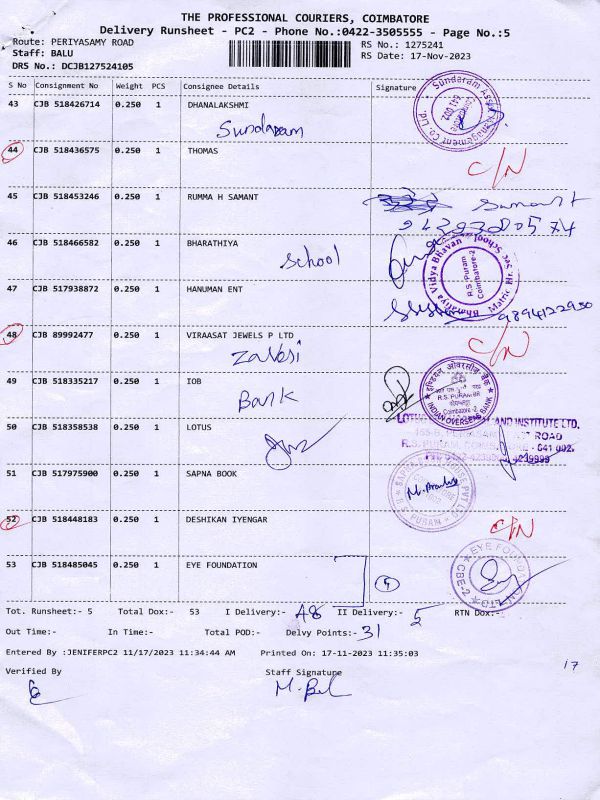 THE PROFESSIONAL COURIERS, COIMBATORE
Delivery Runsheet - PC2 - Phone No.:0422-3505555 - Page No.:5
Route: PERIYASAMY ROAD RS No.: 1275241
Staff: BALU RS Date: 17-Nov-2023
DRS No.: DCJB127524105
S No Consignment No Weight PCS Consignee Details Signature
43 CJB 518426714 0.250 1 DHANALAKSHMI
Sundaram
Sundaram Asset Management Co. Ltd.
641 002
44 CJB 518436575 0.250 1 THOMAS C/N
45 CJB 518453246 0.250 1 RUMMA H SAMANT Samant
46 CJB 518466582 0.250 1 BHARATHIYA
School
Bharatiya Vidya Bhavan Matric Hr. Sec School
R.S. Puram
Coimbatore-2
47 CJB 517938872 0.250 1 HANUMAN ENT
9894122950
48 CJB 89992477 0.250 1 VIRAASAT JEWELS P LTD C/N
49 CJB 518335217 0.250 1 IOB
Bank
इण्डियन ओवरसीज़ बैंक
R.S. PURAM BR
Coimbatore-2
INDIAN OVERSEAS BANK
50 CJB 518358538 0.250 1 LOTUS
AND INSTITUTE LTD.
ROAD
R.S. PURAM, - 641 002.
51 CJB 517975900 0.250 1 SAPNA BOOK
R.S. PURAM
52 CJB 518448183 0.250 1 DESHIKAN IYENGAR C/N
53 CJB 518485045 0.250 1 EYE FOUNDATION
EYE FOUNDATION LTD
CBE-2
Tot. Runsheet:- 5 Total Dox:- 53 I Delivery:- 48 II Delivery:- 5 RTN Dox:-
Out Time:- In Time:- Total POD:- Delvy Points:- 31
Entered By :JENIFERPC2 11/17/2023 11:34:44 AM Printed On: 17-11-2023 11:35:03
17
Verified By Staff Signature